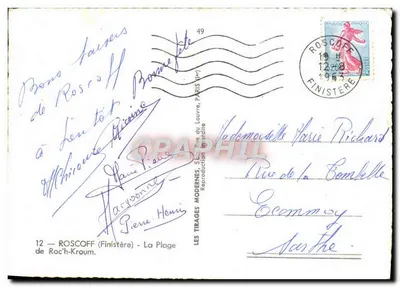 49
ROSCOFF
19 H
12-8
1963
FINISTERE
Bons baisers
de Roscoff
à bientôt
Bonne fête
Marie Pierre
Pierre Henri
Mademoiselle Marie Richard
Rue de la
Ecommoy
Sarthe
LES TIRAGES MODERNES, 5, du Louvre, PARIS
Reproduction interdite
12 — ROSCOFF (Finistère) - La Plage
de Roc'h-Kroum.
CARTE-PHILA